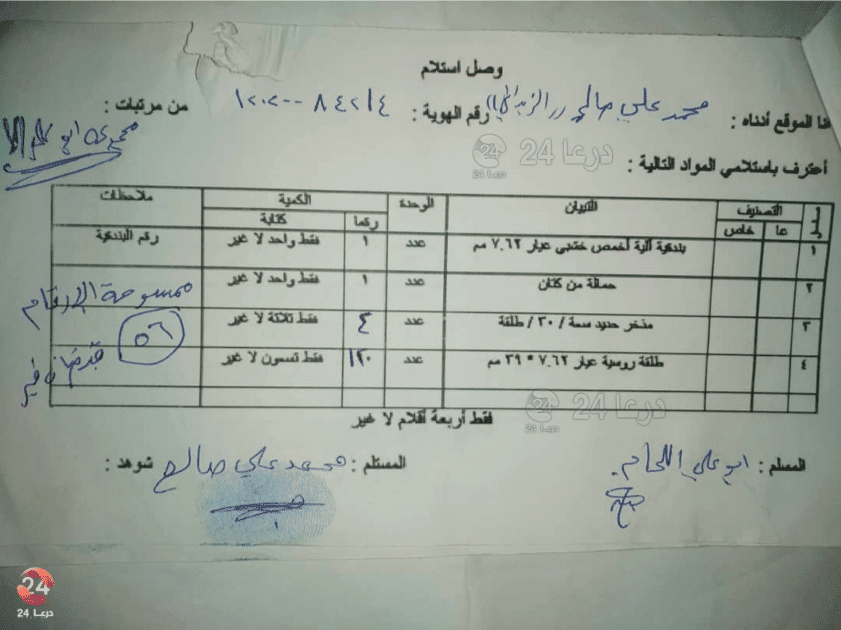 وصل استلام
أنا الموقع أدناه : محمد علي صالح ((الزيداني)) رقم الهوية : ١٢٠٢٠٠٠٨٤٢١٤ من مرتبات :
محمد علي
أعترف باستلامي المواد التالية :
درعا 24
24 درعا 24
التصنيف التبيان الوحدة الكمية ملاحظات
عا خاص رقما كتابة
١ بندقية آلية أخمص خشبي عيار ٧.٦٢ مم عدد ١ فقط واحد لا غير رقم البندقية
٢ حمالة من كتان عدد ١ فقط واحد لا غير ممسوحة الارقام
٣ مذخر حديد سعة / ٣٠ / طلقة عدد ٤ فقط ثلاثة لا غير ٥٦
٤ طلقة روسية عيار ٧.٦٢ * ٣٩ مم عدد ١٢٠ فقط تسعون لا غير
درعا 24
24 درعا 24
فقط أربعة أقلام لا غير
المسلم : ابو علي اللحام المستلم : محمد علي صالح شوهد :
24
درعا 24